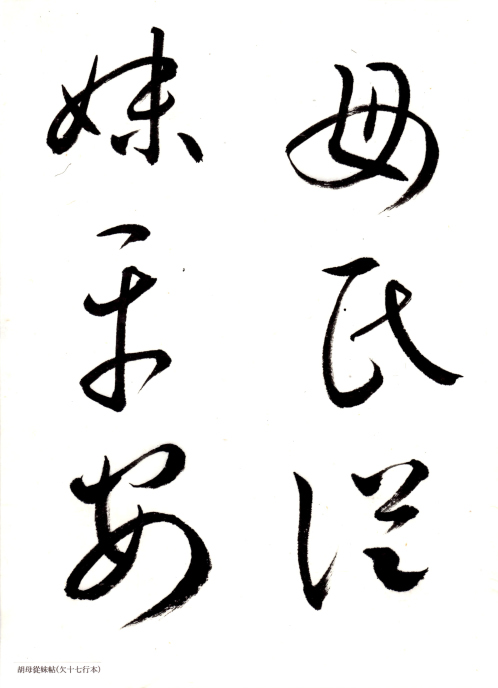 母氏従
妹平安
胡母從妹帖(欠十七行本)